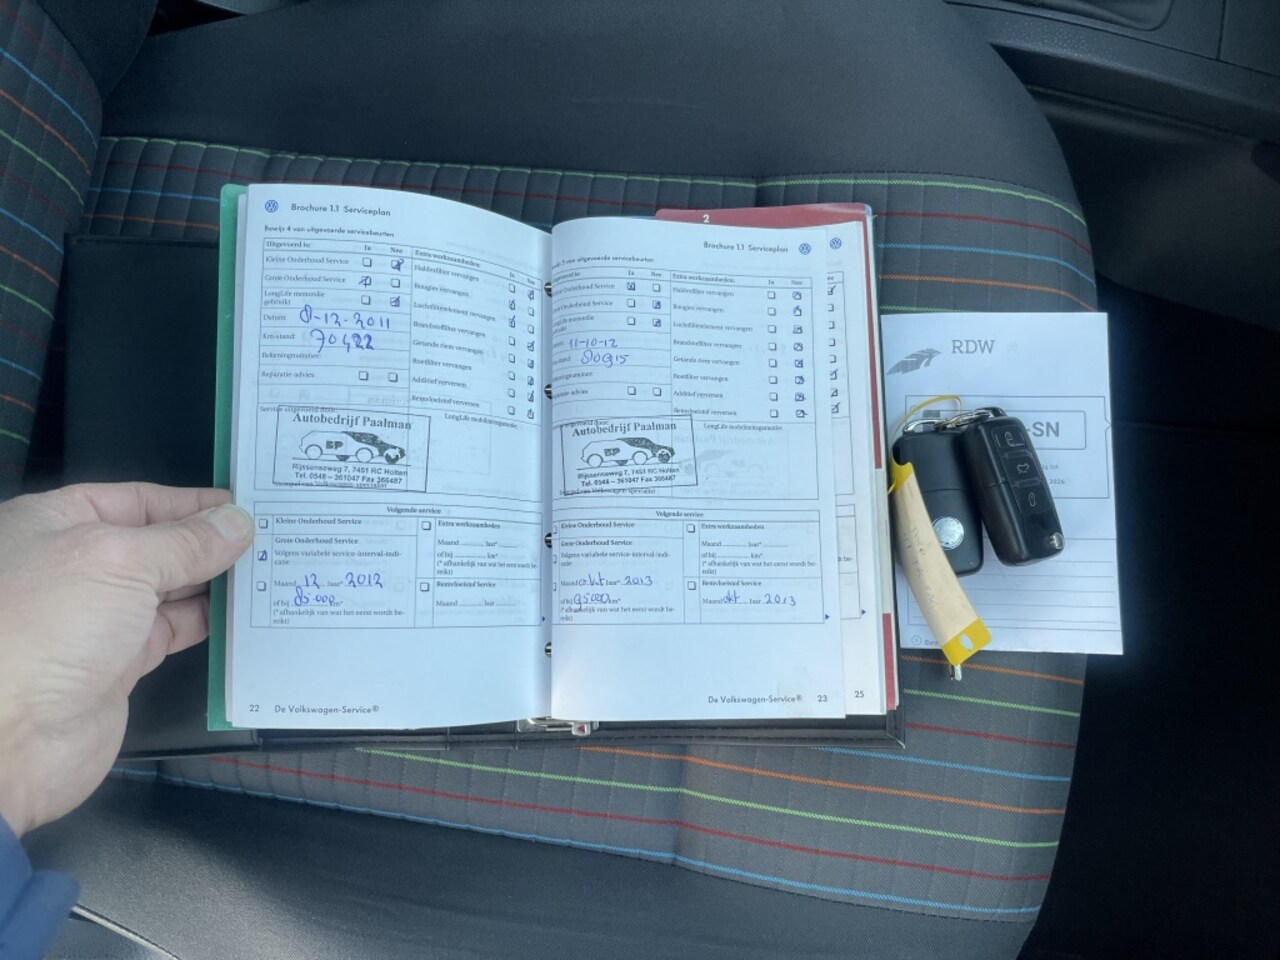 Brochure 1.1 Serviceplan
Bewijs 4 van uitgevoerde servicebeurten
Uitgevoerd is: Ja Nee
Kleine Onderhoud Service
Grote Onderhoud Service
LongLife memorie
gebruikt
Datum: 8-12-2011
Km-stand: 70422
Rekeningnummer:
Reparatie advies
Extra werkzaamheden: Ja Nee
Bougies vervangen
Luchtfilterelement vervangen
Brandstoffilter vervangen
Getande riem vervangen
Roetfilter vervangen
Additief verversen
Remvloeistof verversen
Service uitgevoerd door:
LongLife mobiliteitsgarantie:
Autobedrijf Paalman
BP
Rijssenseweg 7, 7451 RC Holten
Tel. 0548 - 361047 Fax 366487
Stempel van Volkswagen-specialist
Volgende service
Kleine Onderhoud Service
Grote Onderhoud Service
Volgens variabele service-interval-indi-
catie
Maand 12 Jaar* 2012
of bij 85.000 km*
(* afhankelijk van wat het eerst wordt be-
reikt)
Extra werkzaamheden
Maand Jaar*
of bij km*
(* afhankelijk van wat het eerst wordt be-
reikt)
Remvloeistof Service
Maand Jaar
22 De Volkswagen-Service®
2
Brochure 1.1 Serviceplan
van uitgevoerde servicebeurten
Ja Nee
Onderhoud Service
Onderhoud Service
11-10-12
80915
Extra werkzaamheden: Ja Nee
Bougies vervangen
Luchtfilterelement vervangen
Brandstoffilter vervangen
Getande riem vervangen
Roetfilter vervangen
Additief verversen
Remvloeistof verversen
LongLife mobiliteitsgarantie:
Autobedrijf Paalman
BP
Rijssenseweg 7, 7451 RC Holten
Tel. 0548 - 361047 Fax 366487
Volkswagen-specialist
Volgende service
Kleine Onderhoud Service
Grote Onderhoud Service
Volgens variabele service-interval-indi-
catie
Maand okt Jaar* 2013
of bij 95000 km*
(* afhankelijk van wat het eerst wordt be-
reikt)
Extra werkzaamheden
Maand Jaar*
of bij km*
(* afhankelijk van wat het eerst wordt be-
reikt)
Remvloeistof Service
Maand okt Jaar 2013
De Volkswagen-Service® 23
25
RDW
-SN
2026